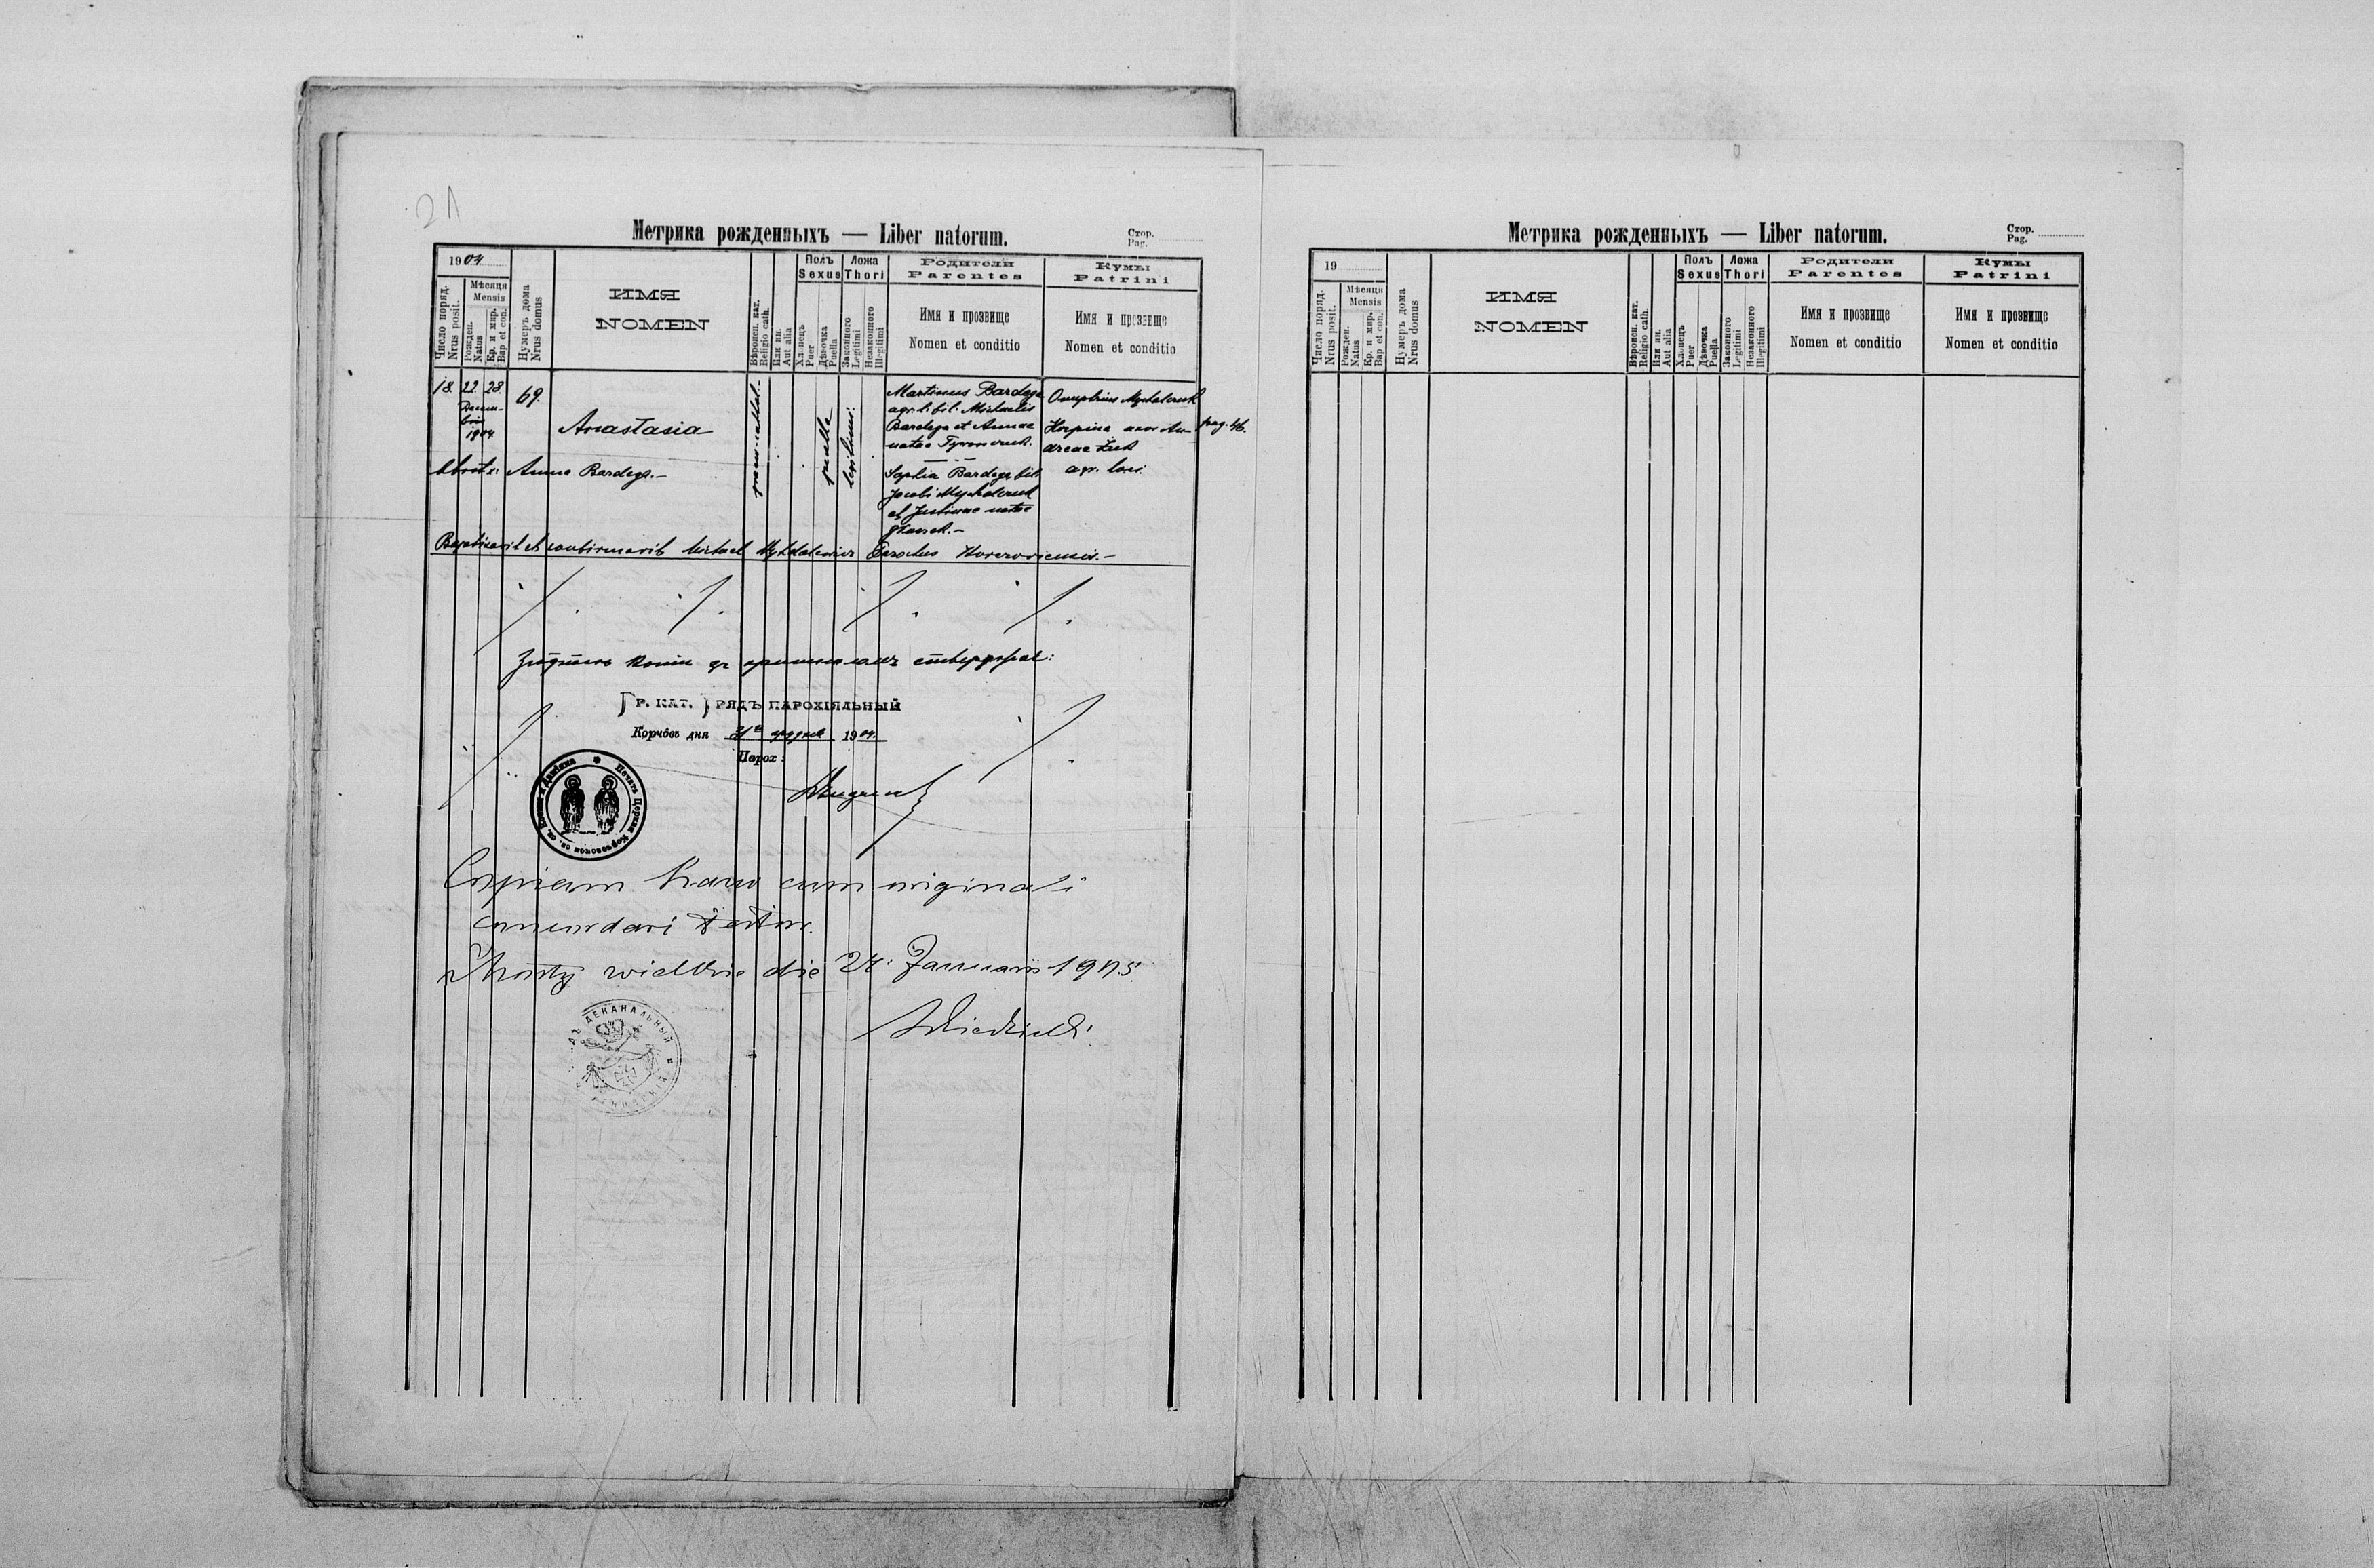 21
Метрика рожденныхъ — Liber natorum.
Стор.
Pag.
1904
Число поряд.
Nrus posit.
Мѣсяця
Mensis
Рожден.
Natus
Кр. и мир.
Bap et con.
Нумеръ дома
Nrus domus
ИМЯ
NOMEN
Вѣроисп. кат.
Religio cath.
Или ин.
Aut alia
Полъ
Sexus
Хлопецъ
Puer
Дѣвочка
Puella
Ложа
Thori
Законного
Legitimi
Незаконного
Illegitimi
Родители
Parentes
Имя и прозвище
Nomen et conditio
Кумы
Patrini
Имя и прозвище
Nomen et conditio
18. 22 28 69.
Decem-
bris
1904
Anastasia
puella
legitimi.
Martinus Bardega
agr. l. fil. Michaelis
Bardega et Annae
natae
Sophia Bardega fil.
Jacobi Mychalczuk
et Justinae natae
Onuphrius Mychalczuk
uxor An-
dreae
agr. loci.
pag. 46.
Obstetrix: Anna Bardega.—
Baptisavit et confirmavit Michael Parochus Korczoviensis.—
копіи зъ оригиналомъ
ГР. КАТ. УРЯДЪ ПАРОХІЯЛЬНЫЙ
Корчôвъ дня 31го грудня 1904.
Парох:
Печать Церкви Корчовскои св. св. Косми и Даміяна
Copiam hanc cum originali
concordari testor.
Mosty wielkie die 24. Januarii 1905.
ДЕКАНАЛЬНЫЙ
Метрика рожденныхъ — Liber natorum.
Стор.
Pag.
19
Число поряд.
Nrus posit.
Мѣсяця
Mensis
Рожден.
Natus
Кр. и мир.
Bap et con.
Нумеръ дома
Nrus domus
ИМЯ
NOMEN
Вѣроисп. кат.
Religio cath.
Или ин.
Aut alia
Полъ
Sexus
Хлопецъ
Puer
Дѣвочка
Puella
Ложа
Thori
Законного
Legitimi
Незаконного
Illegitimi
Родители
Parentes
Имя и прозвище
Nomen et conditio
Кумы
Patrini
Имя и прозвище
Nomen et conditio